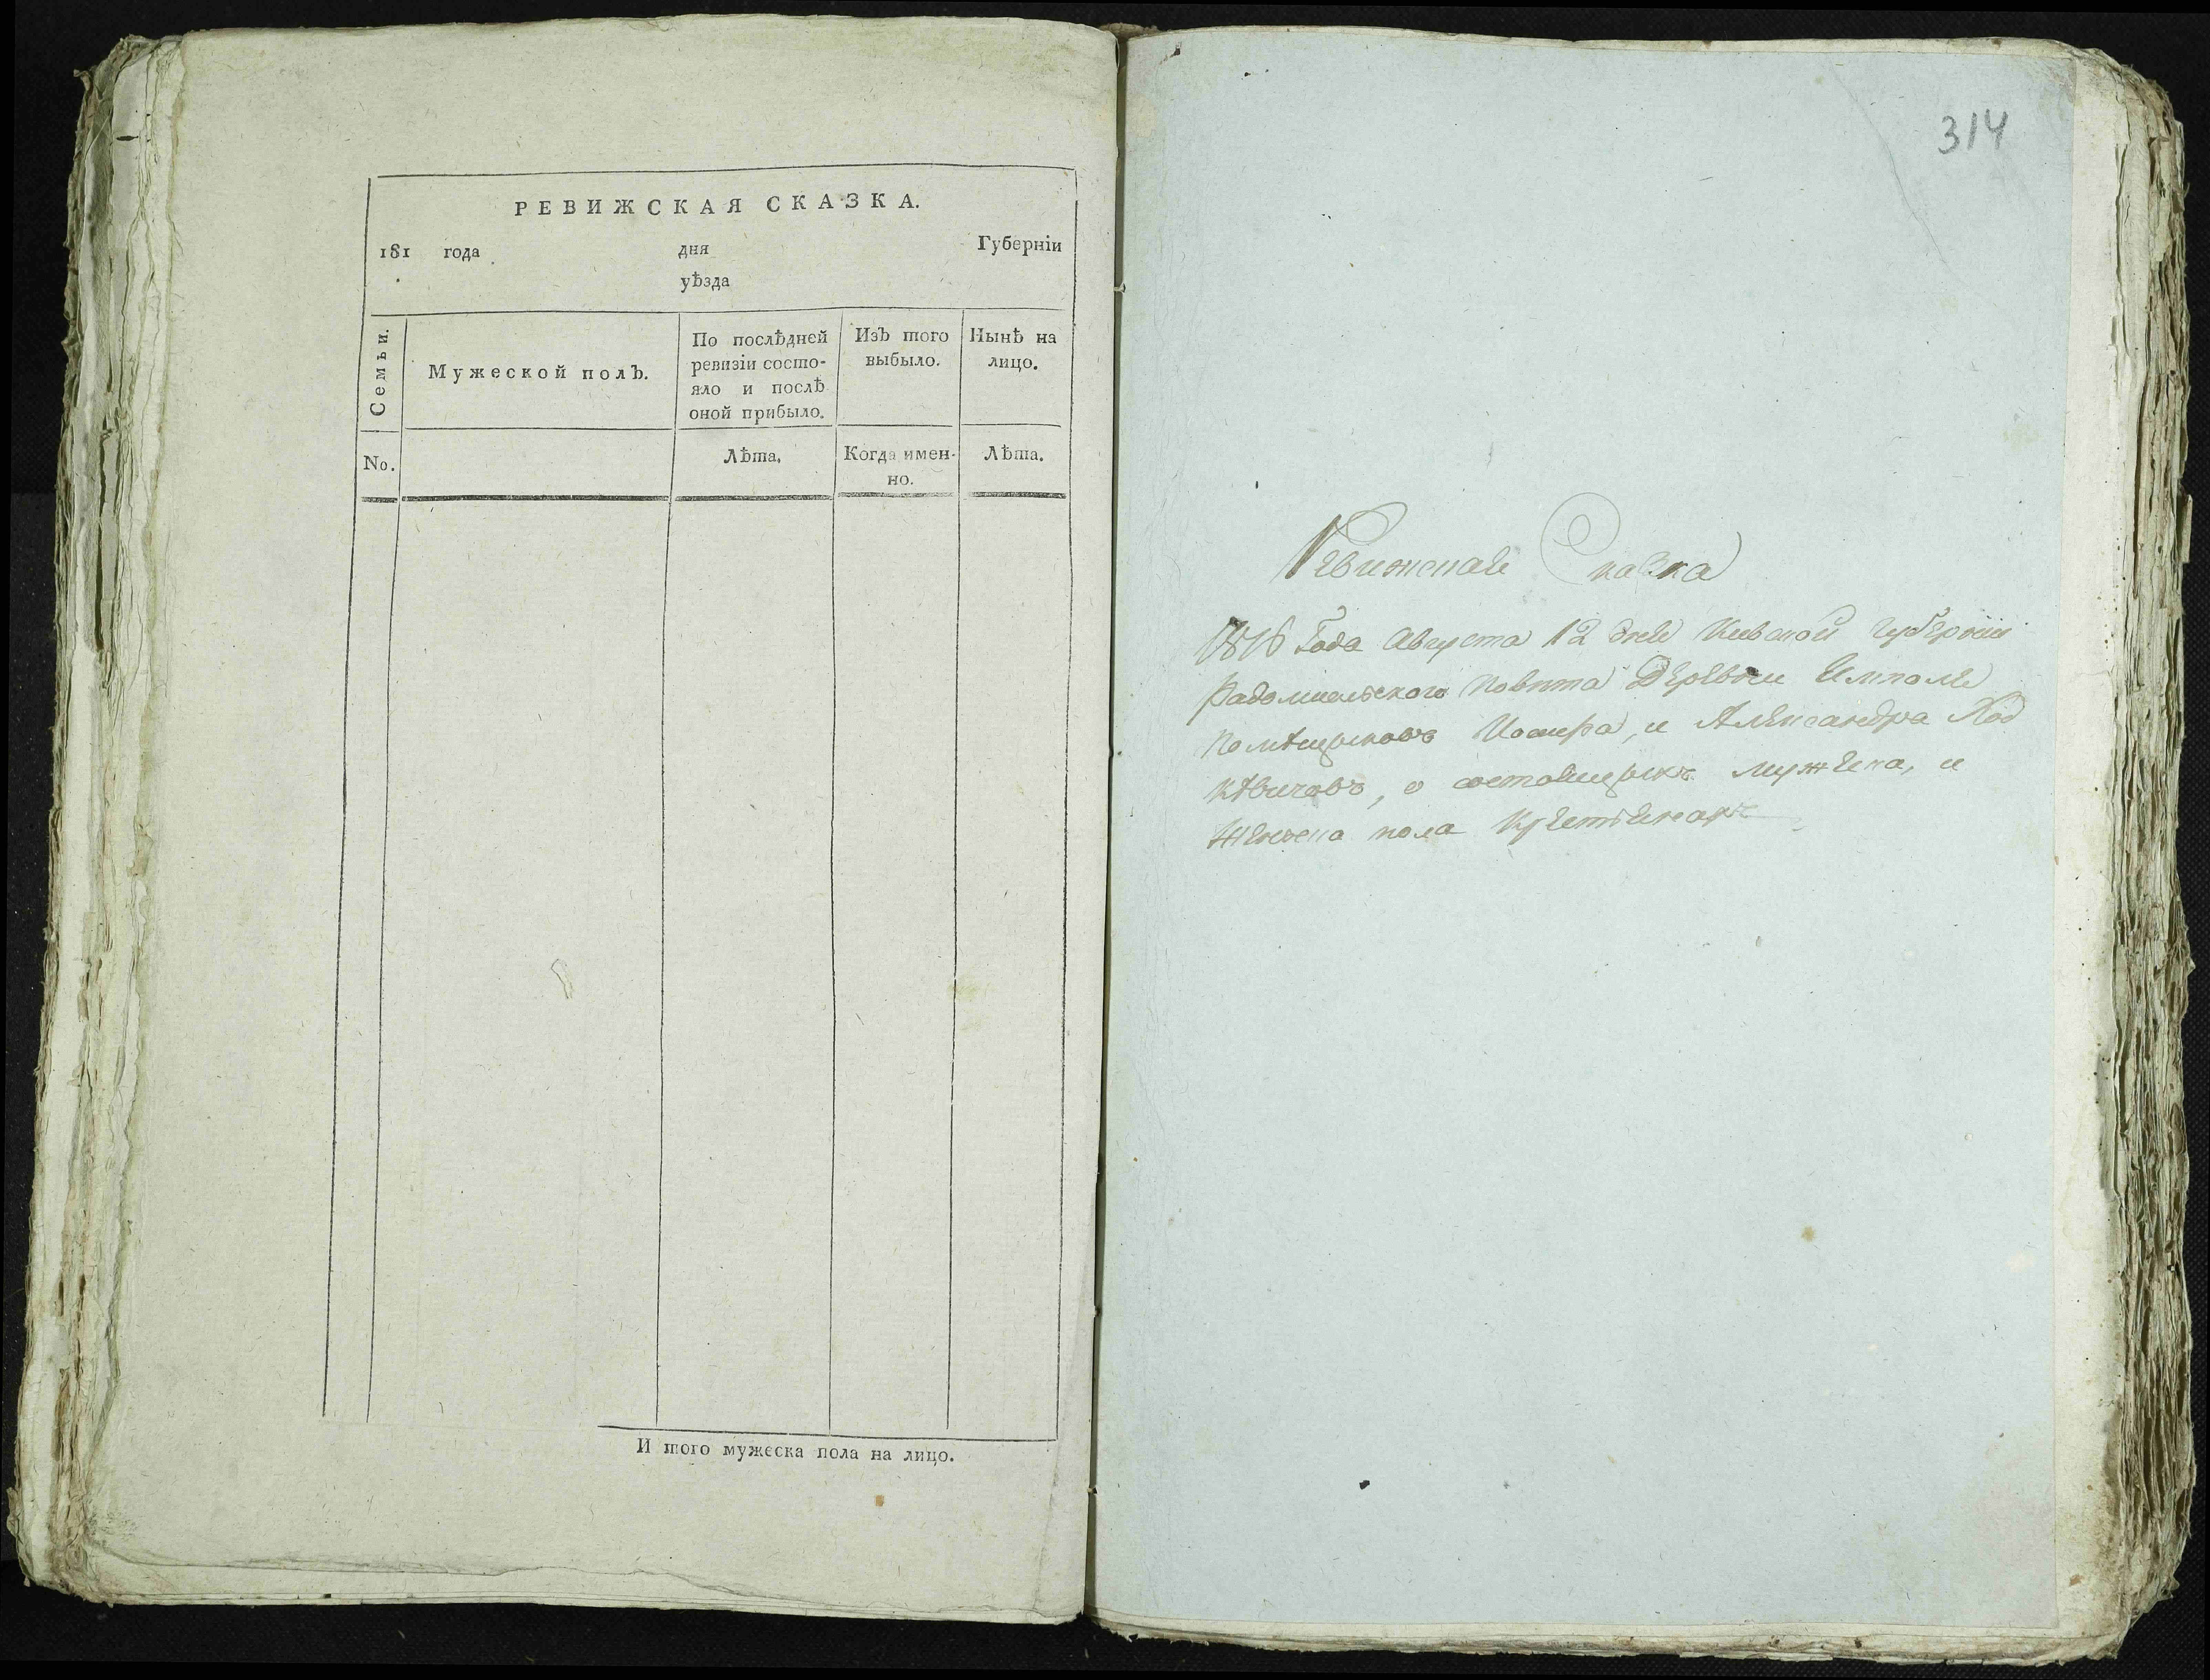 РЕВИЖСКАЯ СКАЗКА.
181 года дня Губерніи
уѣзда
Семьи.
Мужеской полъ.
По послѣдней
ревизіи состо-
яло и послѣ
оной прибыло.
Изъ того
выбыло.
Нынѣ на
лицо.
No.
Лѣта.
Когда имен-
но.
Лѣта.
И того мужеска пола на лицо.
314
Ревижская Сказка
1816 Года Августа 12 дня Киевской Губернии
Радомисльского Повѣта Деревни Ямполя
Помѣщиковъ и Александра Ход
кѣвичовъ, о состоящихъ мужеска, и
женска пола Крестянахъ